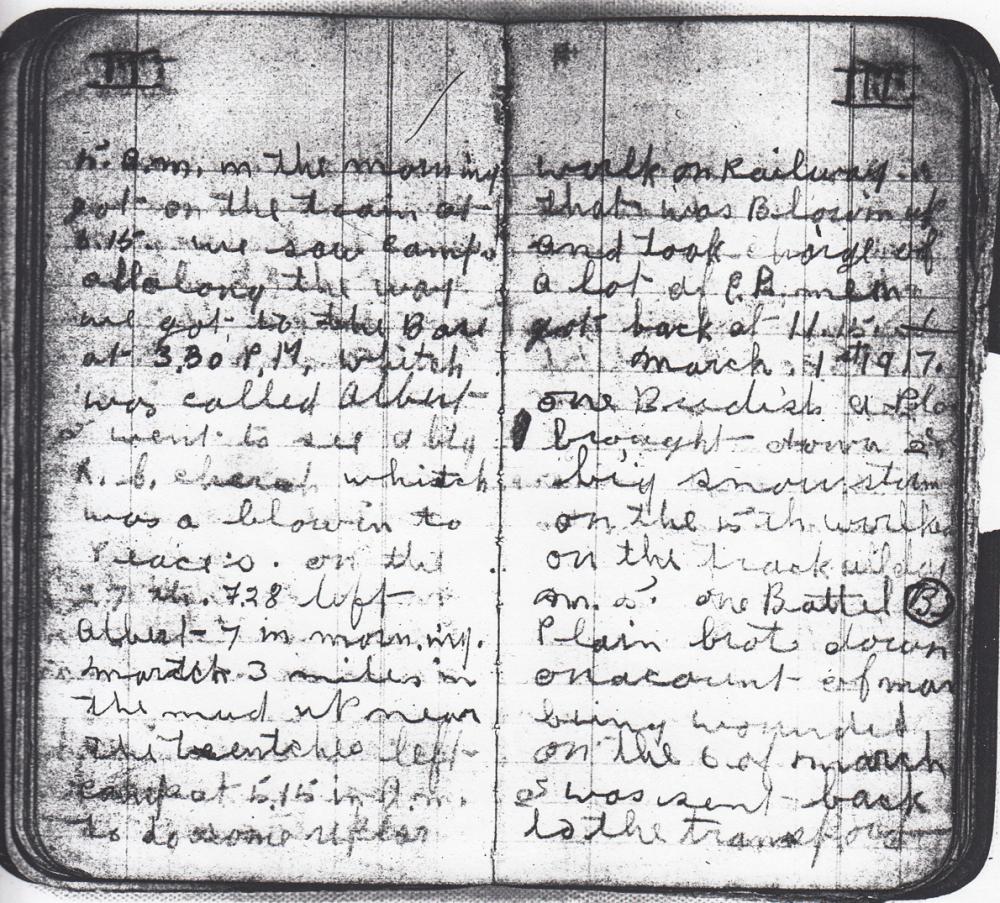 III
5. a.m. in the morning
got on the train at
6.15. we saw camps
all along the way
we got to the Base
at 3,30 P,M, whitch
was called Albert
I went to see a big
R. C. cherch whitch
was a blowin to
Peace's. on the
27 th. & 28 left
Albert 7 in morn.ing.
martch 3 miles in
the mud up near
the trentches left
camp at 5,15 in P.m.
to do some
IIII
work on Railway.
that was Blowin up
and took charge of
a lot of P.B. men
got back at 11.15.
March. 1 st 1917.
one Bradish a Plo
brought down
big snow storm
on the 5 th worke
on the track
m. 5. one Battel B
Plain brot down
on acount of man
being wounded
on the 6 of march
I was sent back
to the transport